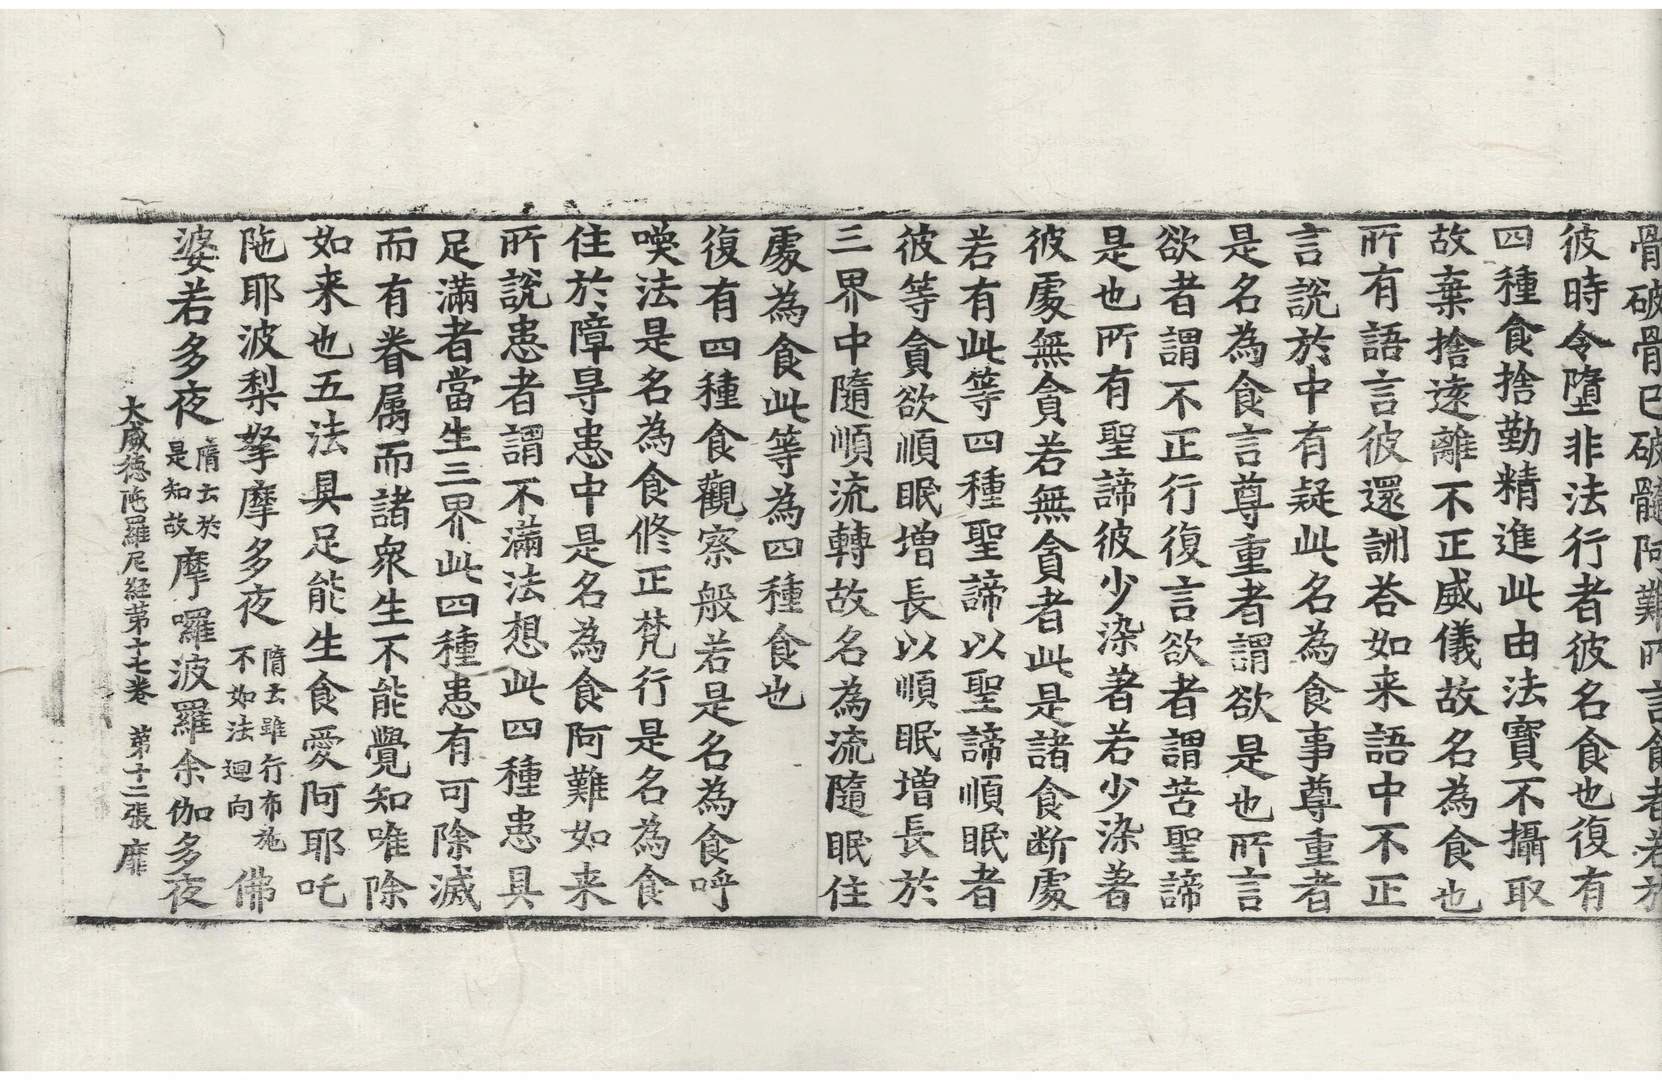 骨破骨已破髓阿難所言食者若於
彼時令墮非法行者彼名食也復有
四種食捨勤精進此由法寶不攝取
故棄捨遠離不正威儀故名為食也
所有語言彼還詶荅如来語中不正
言說於中有疑此名為食事尊重者
是名為食言尊重者謂欲是也所言
欲者謂不正行復言欲者謂苦聖諦
是也所有聖諦彼少染著若少染著
彼處無貪若無貪者此是諸食断處
若有此等四種聖諦以聖諦順眠者
彼等貪欲順眠增長以順眠增長於
三界中隨順流轉故名為流隨眠住
處為食此等為四種食也
復有四種食觀察般若是名為食呼
喚法是名為食修正梵行是名為食
住於障㝵恚中是名為食阿難如来
所說恚者謂不滿法想此四種恚具
足滿者當生三界此四種恚有可除滅
而有眷属而諸衆生不能覺知唯除
如来也五法具足能生食愛阿耶吒
陁耶波梨拏摩多夜隋云雖行布施不如法迴向佛
婆若多夜隋云於是知故摩囉波羅余伽多夜
大威德陁羅尼経第十七卷 第十二張 靡